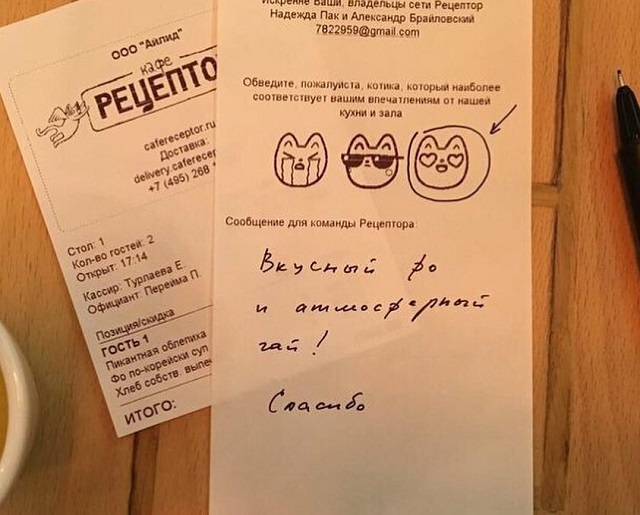 ООО "Айлид"
кафе
РЕЦЕПТО
cafereceptor.ru
Доставка:
delivery.caferecep
+7 (495) 268
Стол: 1
Кол-во гостей: 2
Открыт: 17:14
Кассир: Турлаева Е.
Официант: Перейма П.
Позиция/скидка
ГОСТЬ 1
Пикантная облепиха
Фо по-корейски суп
Хлеб собств. выпе
ИТОГО:
Искренне Ваши, владельцы сети Рецептор
Надежда Пак и Александр Брайловский
7822959@gmail.com
Обведите, пожалуйста, котика, который наиболее
соответствует вашим впечатлениям от нашей
кухни и зала
Сообщение для команды Рецептора:
Вкусный фо
и атмосферный
чай!
Спасибо